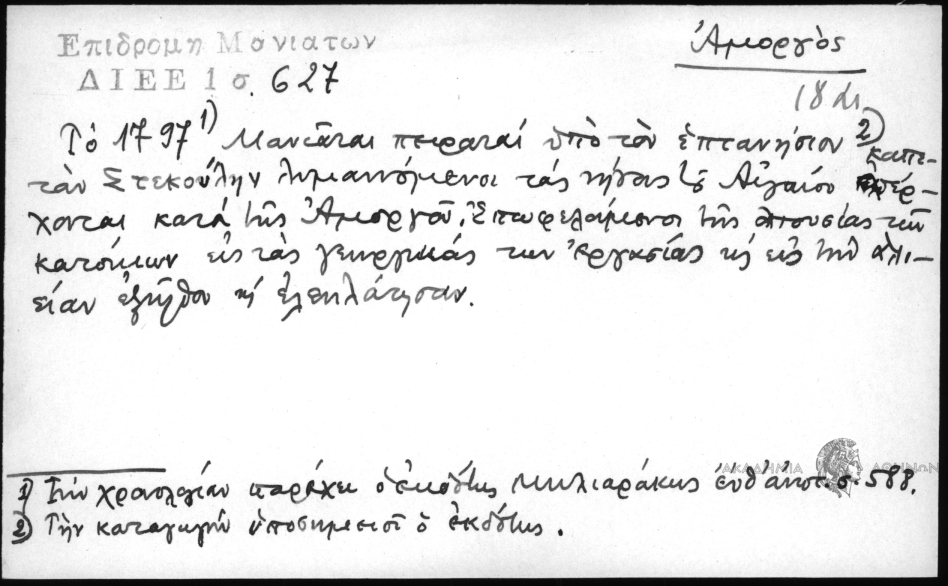 Επιδρομη Μανιατων
ΔΙΕΕ 1 σ. 627
Ἀμοργὸς
18 αι
Τὸ 1797 1) Μανιᾶται πειραταί ὑπὸ τὸν ἑπτανήσιον 2) καπε-
τὰν Στεκούλην λυμαινόμενοι τάς νήσους τοῦ Αἰγαίου ἐπέρ-
χονται κατά τῆς Ἀμοργοῦ. Ἐπωφελούμενοι τῆς ἀπουσίας τῶν
κατοίκων εἰς τὰς γεωργικάς των ἐργασίας κ' εἰς τὴν ἁλι-
είαν ἐξῆλθον κ' ἐλεηλάτησαν.
1) Τὴν χρονολογίαν παρέχει ὁ ἐκδότης Μηλιαράκης ἔνθ' ἀνωτ. σ. 588.
2) Τὴν καταγωγήν ὑποσημειοῖ ὁ ἐκδότης.
ΑΚΑΔΗΜΙΑ ΑΘΗΝΩΝ